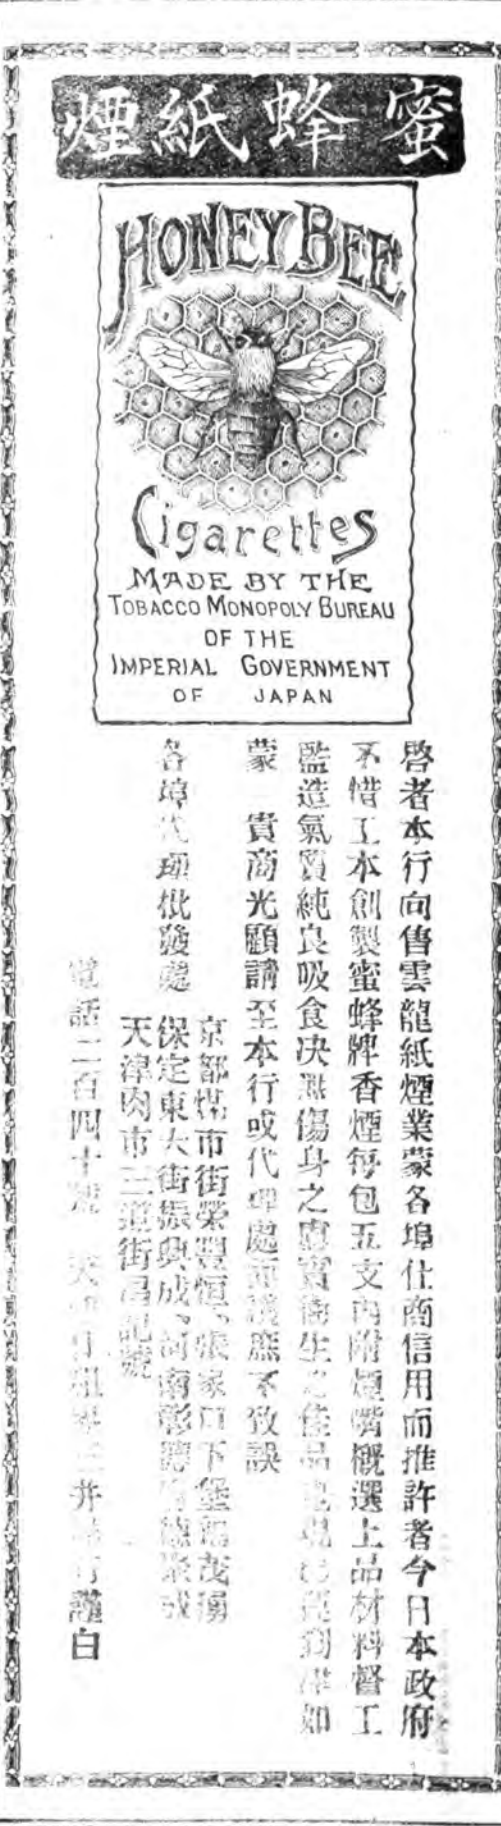 蜜蜂紙煙
HONEY BEE
Cigarettes
MADE BY THE
TOBACCO MONOPOLY BUREAU
OF THE
IMPERIAL GOVERNMENT
OF JAPAN
啓者本行向售雲龍紙煙業蒙各埠仕商信用而推許者今日本政府
不惜工本創製蜜蜂牌香煙每包五支內附煙嘴概選上品材料督工
監造氣質純良吸食決無傷身之慮實衛生之佳品 到津如
蒙 貴商光顧請至本行或代理處面議庶不致誤
各埠代理批發處
京都煤市街榮豐恒、張家口下堡 茂
保定東大街振興成、河南彰德府德聚成
天津肉市三道街昌記號
電話二百四十號 天津日租界三井洋行謹白